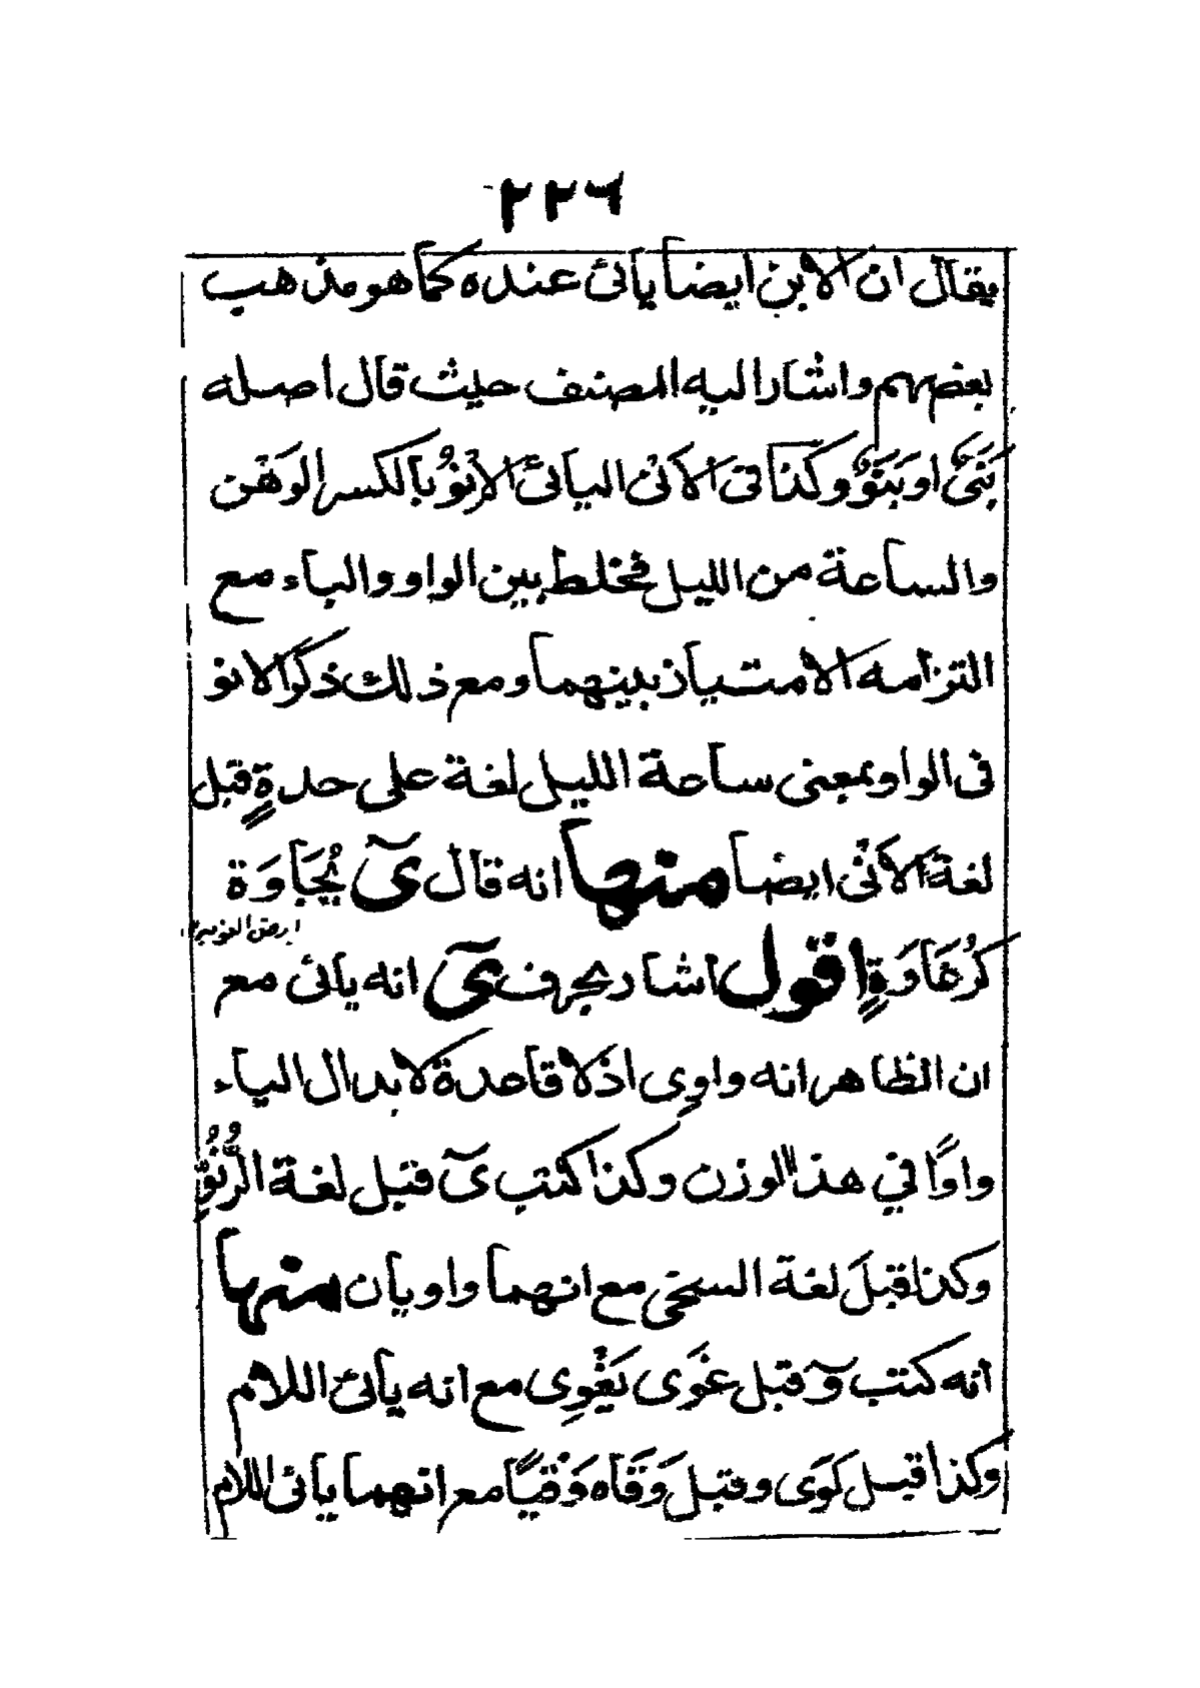 ٢٢٦
يقال ان الابن ايضا يائ عنده كما هو مذهب
بعضهم واشار اليه المصنف حيث قال اصله
بَنَىٌ او بَنَوٌ وكذا فى الاَنْى اليائ الاِنْوُ بالكسر الوَهَن
والساعة من الليل فخلط بين الواو والياء مع
التزامه الامتياز بينهما ومع ذلك ذكر الانو
فى الواو بمعنى ساعة الليل لغة على حدةٍ قبل
لغة الاَنْى ايضا منها انه قال ىٓ بُجَاوَة
كزُهَاوَةٍ اقول اشار بحرف ىٓ انه يائ مع
ارض النوبة
ان الظاهر انه واوى اذ لا قاعدة لابدال الياء
واوًا في هذا الوزن وكذا كتب ىٓ قبل لغة الرُّنُوِّ
وكذا قبلَ لغة السخى مع انهما واويان منها
انه كتب وٓ قبل غَوَى يَغْوِى مع انه يائ اللام
وكذا قبل كَوَى وقبل وَقَاه وَقْيًا مع انهما يائى اللام